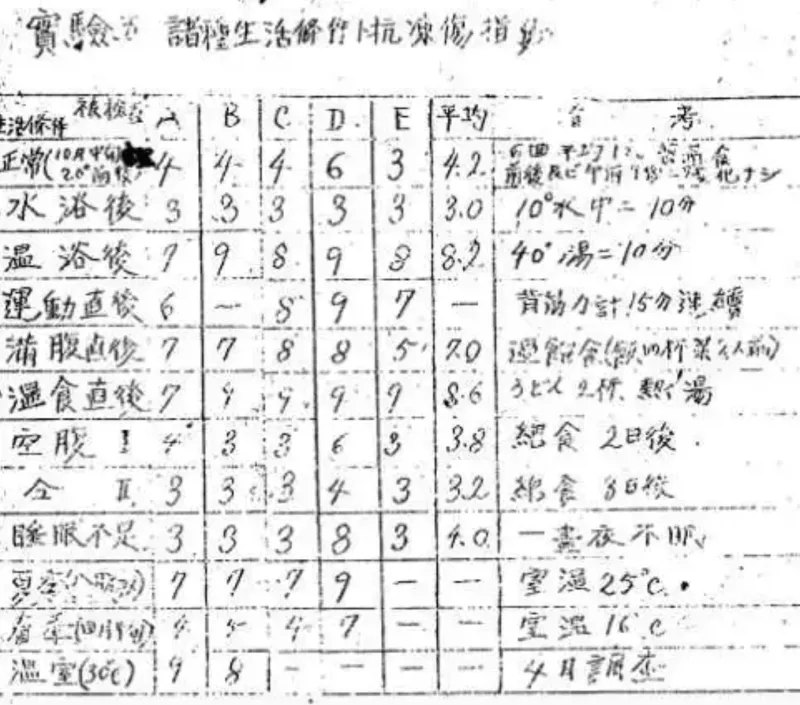 實驗 諸種生活條件ト抗凍傷指數
被檢者 生活條件 A B C D E 平均 備考
正常(10月中旬 20°前後) 4 4 4 6 3 4.2 前後及ビ午前 變化ナシ
水浴後 3 3 3 3 3 3.0 10°水中ニ10分
温浴後 7 9 8 9 8 8.2 40°湯ニ10分
運動直後 6 — 8 9 7 — 背筋力計15分連續
満腹直後 7 7 8 8 5 7.0 過飽食(飯四杯菜二人前)
温食直後 7 9 9 9 9 8.6 うどん2杯、熱イ湯
空腹 I 4 3 3 6 3 3.8 絶食 2日後
仝 II 3 3 3 4 3 3.2 絶食 3日後
睡眠不足 3 3 3 8 3 4.0 一晝夜不眠
夏季 7 7 7 9 — — 室温25°C.
(四月中旬) 4 4 7 — — 室温16°C
温室(30°C) 9 8 — — — — 4月調査